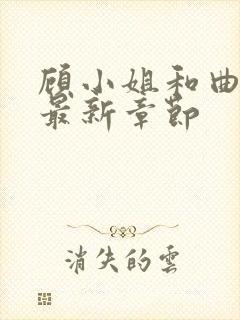 顾小姐和曲
最新章节
消失的雲